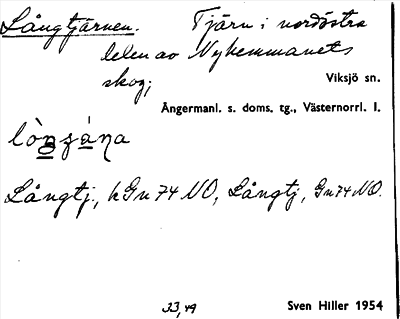 Långtjärnen. Tjärn i nordöstra
delen av Nyhemmanets
skog;
Viksjö sn.
Ångermanl. s. doms. tg., Västernorrl. l.
Långtj., hGn 74 NO, Långtj, Gn 74 NO.
33,49 Sven Hiller 1954